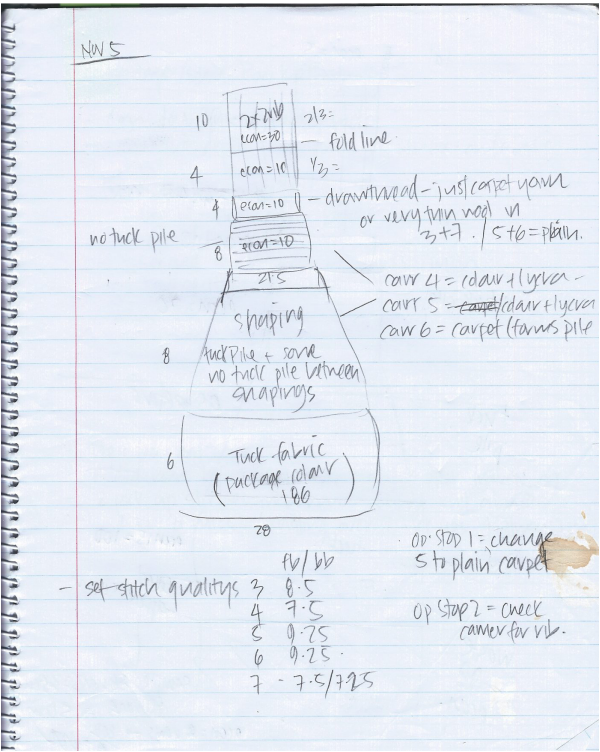 Nov 5
10 2x2rib 2/3=
econ=30 - fold line.
4 econ=10 1/3=
4 econ=10 - drawthread - just carpet yarn
or very thin wool in
3+7. / 5+6=plain.
no tuck pile
8 econ=10
21.5
carr 4 = colour+lycra -
carr 5 = colour+lycra
carr 6 = carpet (forms pile
shaping
8 tuck pile + some
no tuck pile between
shapings
6 Tuck fabric
(package colour)
186
28
op.stop 1 = change
5 to plain carpet
fb/bb
- set stitch qualitys 3 8.5
4 7.5
5 9.25
6 9.25
7 - 7.5/7.25
op stop 2 = check
carrier for rib.